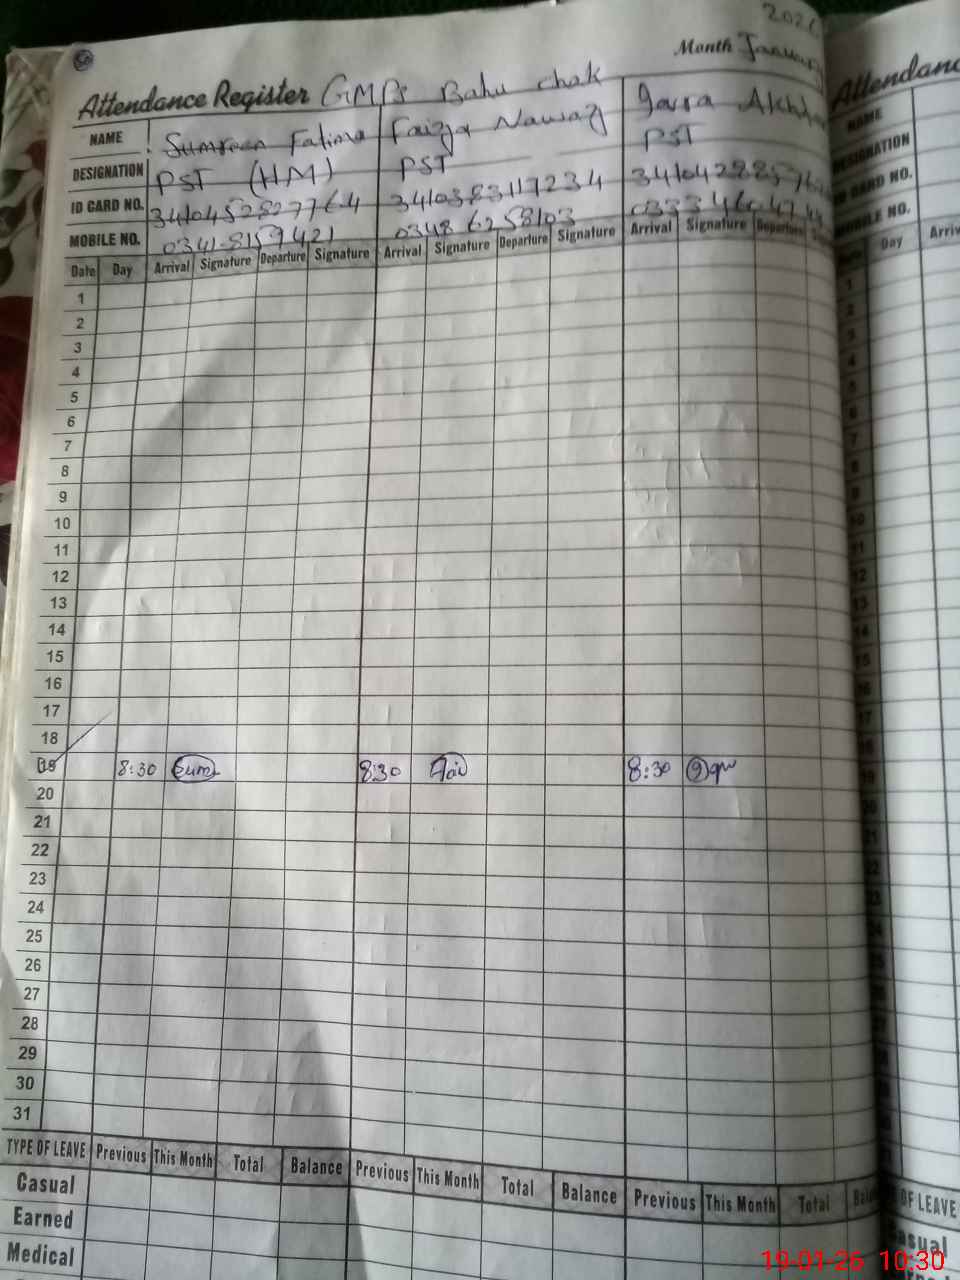 2026
Month January
Attendance Register GMPS Bahu chak
NAME Sumreen Fatima Faiza Nawaz Akhtar
DESIGNATION PST (HM) PST PST
ID CARD NO. 3410452827764 3410383117234
MOBILE NO. 0341-8159421 0348 6258103
Date Day Arrival Signature Departure Signature Arrival Signature Departure Signature Arrival Signature Departure
1
2
3
4
5
6
7
8
9
10
11
12
13
14
15
16
17
18
19 8:30 Sum 8:30 Fai 8:30
20
21
22
23
24
25
26
27
28
29
30
31
TYPE OF LEAVE Previous This Month Total Balance Previous This Month Total Balance Previous This Month Total
Casual
Earned
Medical
Attendance
NAME
DESIGNATION
ID CARD NO.
MOBILE NO.
Day
OF LEAVE
Casual
19-01-26 10:30